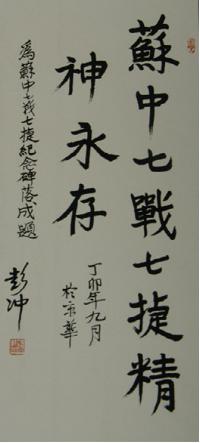 蘇中七戰七捷精
神永存
丁卯年九月
於京華
為蘇中七戰七捷紀念碑落成題
彭沖